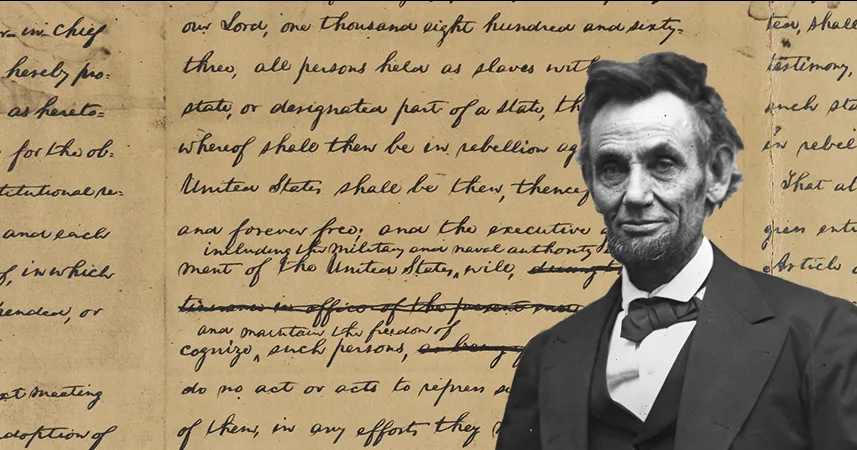 r-in-Chief
hereby pro=
as hereto=
for the ob=
titutional re=
and each
in which
pended, or
xt meeting
adoption of
our Lord, one thousand eight hundred and sixty-
three, all persons held as slaves with
state, or designated part of a state, th
whereof shall then be in rebellion ag
United States shall be then, thencef
and forever free; and the executive
including the military and naval authority
ment of the United States, will, during t
tinuance in office of the present
and maintain the freedom of
cognize, such persons, as being
do no act or acts to repress s
of them, in any efforts they
ted, shall
testimony,
such sta
in rebel
That a
gress enti
Article